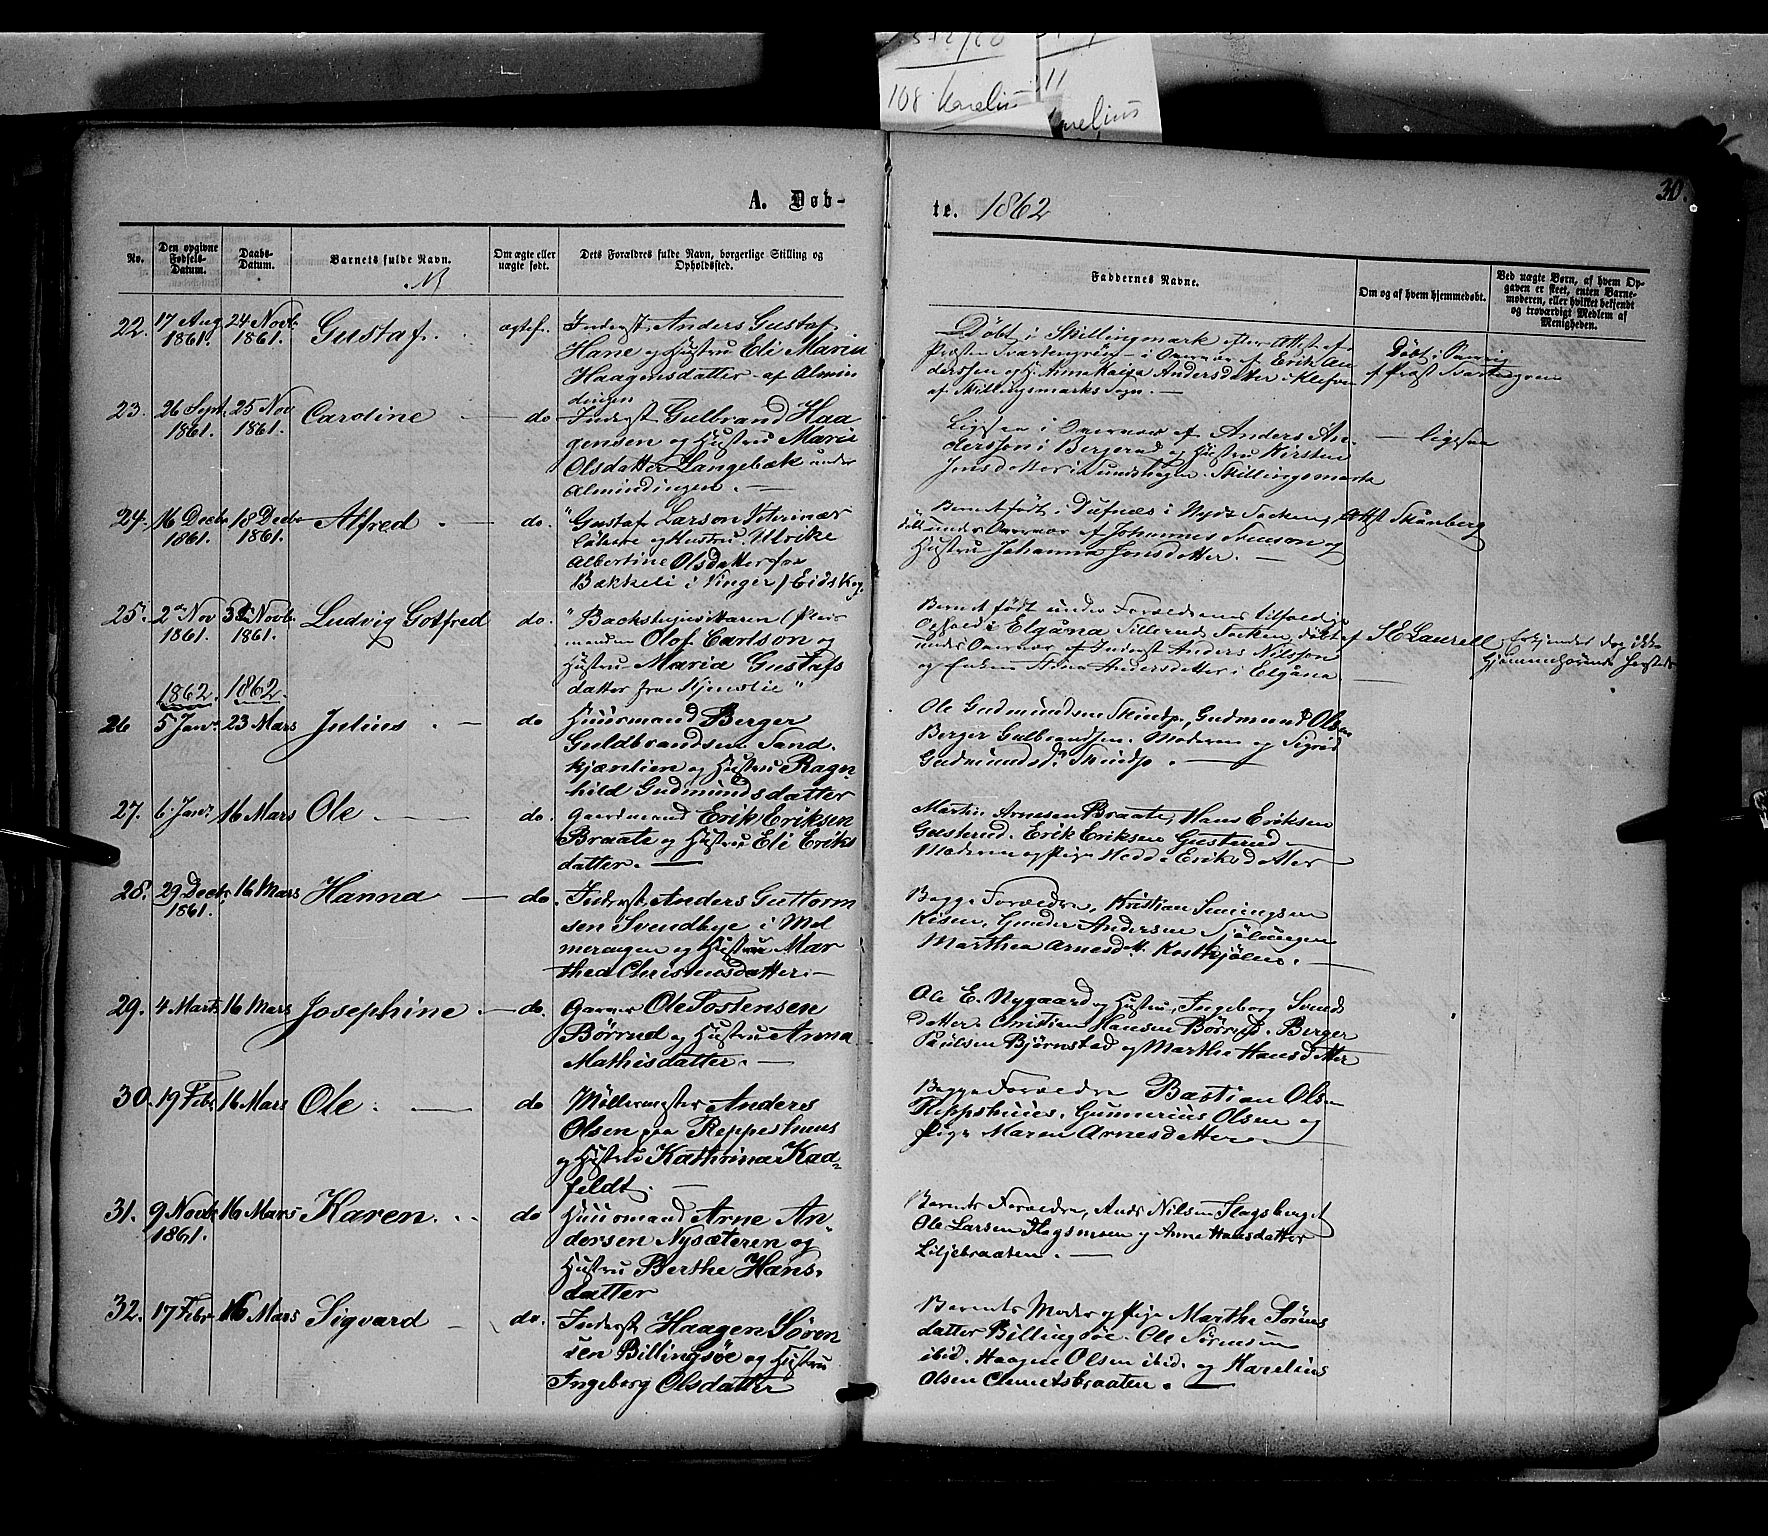 108 Karelius 11
Karelius
A. Døb-
te. 1862
30.
No.
Den opgivne Fødsels-Datum.
Daabs-Datum.
Barnets fulde Navn.
Om ægte eller uægte født.
Dets Forældres fulde Navn, borgerlige Stilling og Opholdssted.
Faddernes Navne.
Om og af hvem hjemmedøbt.
Ved uægte Børn, af hvem Opgaven er skeet, enten Barnemoderen, eller hvilket bekjendt og troværdigt Medlem af Menigheden.
22. 17 Aug 24 Novb Gustaf. ægtef. Inderst Anders Gustaf
1861. 1861. Hane og Hustru Eli Maria
Haagensdatter af Almin
dingen
Døbt i Skillingmark efter Attest af
Præsten Svartengren i Overvær af Erik An
derssen og H. Anna Kaisa Andersdatter i
af Skillingmarks Sogn.
Døbt i
af Præst Svartengren
23. 26 Sept. 25 Nov Caroline do Inderst Gulbrand Haa
1861. 1861. gensen og Hustru Maria
Olsdatter Langebæk under
Almindingen.
Ligesaa i Overvær af Anders An
dersson i Bergerud og Hustru Kirsten
Jonsdatter i Sundhagen Skillingsmark
ligesaa
24. 16 Decbr 18 Decbr Alfred do. Gustaf Larson Veterinær
1861. 1861. og Hustru Ulrike
Albertine Olsdatter fra
Bakkeli i Vinger / Eidskog.
Barnet født i Socken,
under Overvær af Johannes Svenson og
Hustru Johanna Jonsdatter.
Attst Skånberg
25. 2 Nov 3 Novb. Ludvig Gotfred do.
1861. 1861. manden Olof Carlson og
Hustru Maria Gustafs
datter fra
Barnet født under Forældrenes tilfældige
Ophold i Elgåna Sillerud Socken, døbt af
under Overvær af Inderst Anders Nilsson
og Enken Stina Andersdatter i Elgåna
S E Laurell
erkjendes dog ikke
hjemmehørende hersteds
1862. 1862.
26 5 Janr. 23 Mars Julius. do Huusmand Berger
Guldbrandsen Sand.
kjærnlien og Hustru Ragn
hild Gudmundsdatter
Ole Gudmundsen Skindp, Gudmund Olsen
Berger Gulbrandsen. Moderen og Sigrid
Gudmundsdr Skindp.
27. 6 Janr 16 Mars Ole do. Gaardmand Erik Eriksen
Braate og Hustru Eli Eriks
datter.
Martin Arnesen Braate, Hans Eriksen
Gusterud. Erik Eriksen Gusterud
Moderen og Pige Hedda Eriksdatter
28. 29 Decbr. 16 Mars Hanna do. Inderst Anders Guttorm
1861. sen Svendbye i Mel
merangen og Hustru Mar
thea Christensdatter.
Begge Forældre, Kristian
Gunder Andersen
Marthea Arnesdtr.
29. 4 Marts 16 Mars Josephine. do. Garver Ole Tostensen
Børrud og Hustru Anna
Mathisdatter.
Ole E. Nygaard og Hustru, Ingeborg Svends
datter. Christian Hansen Børrud. Berger
Paulsen Bjørnstad og Marthe Hansdatter
30. 19 Febr 16 Mars Ole. do Møllermester Anders
Olsen paa Reppeshuus
og Hustru Kathrina Kaa=
feldt.
Begge Forældre Bastian Olsen
Reppshuus, Gunnerius Olsen og
Pige Maren Arnesdatter
31. 9 Novbr 16 Mars Karen. do Huusmand Arne An
1861. dersen Nysæteren og
Hustru Berthe Hans.
datter
Barnets Forældre, Anders Nilsen Flagsberget
Ole Larsen Flagsmoen og Anne Hansdatter
Liljebraaten.
32. 17 Febr. 16 Mars Sigvard do. Inderst Haagen Søren
sen Billingsøe og Hustru
Ingeborg Olsdatter
Barnets Moder og Pige Marthe Sørens
datter Billingsøe. Ole Sørensen
ibid. Haagen Olsen ibid. og Karelius
Olsen Clemetsbraaten.